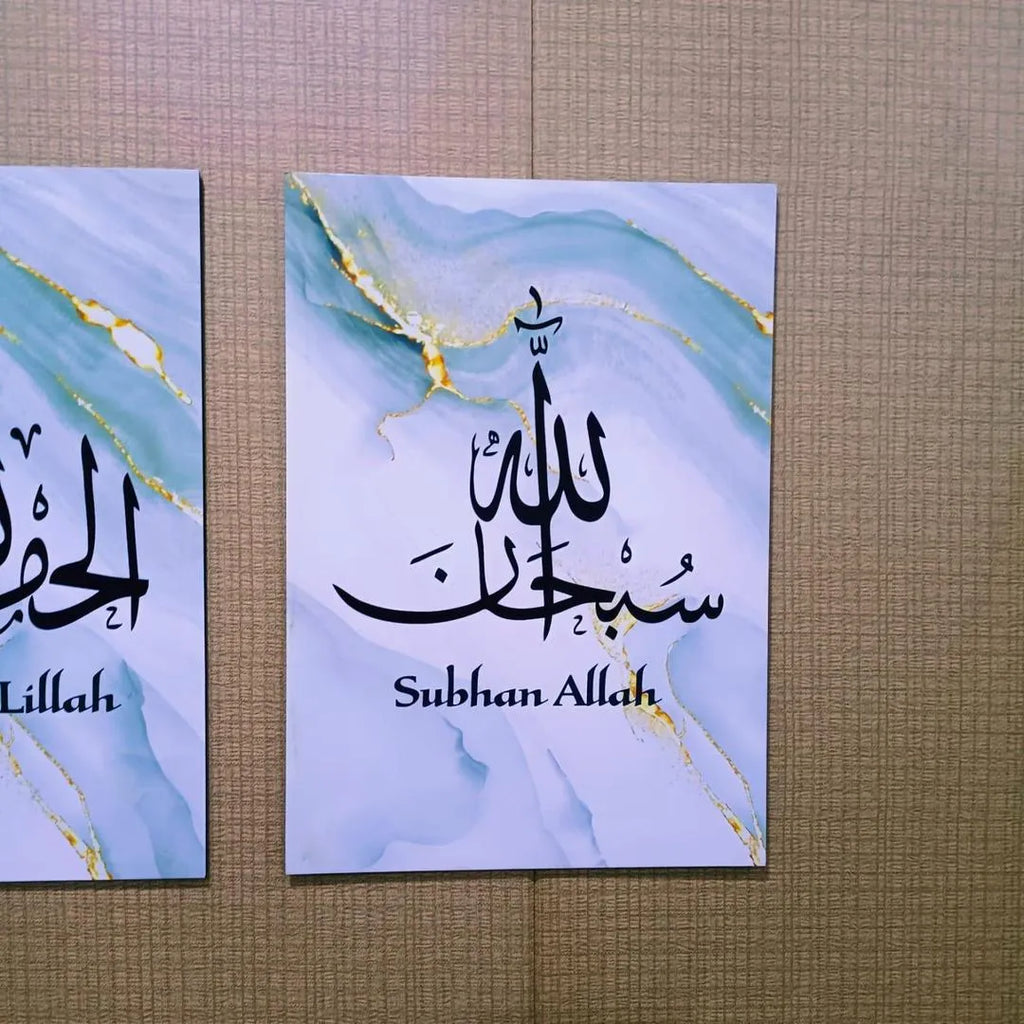 سُبْحَانَ اللّٰه
Subhan Allah
Lillah